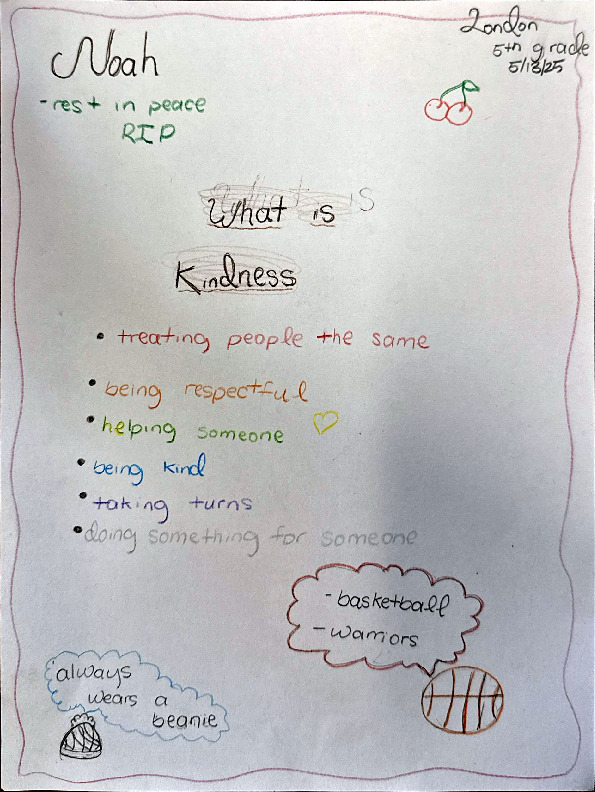 Noah
London
5th grade
5/13/25
- rest in peace
RIP
What is
Kindness
• treating people the same
• being respectful
• helping someone
• being kind
• taking turns
• doing something for someone
- basketball
- warriors
always
wears a
beanie